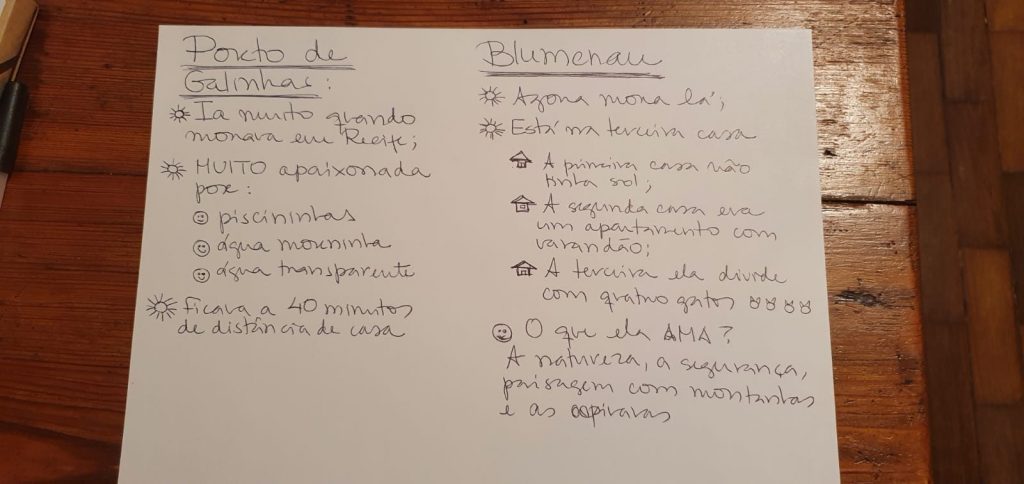 Porto de
Galinhas:
Ia muito quando
morava em Recife;
MUITO apaixonada
por:
piscininhas
água morninha
água transparente
Ficava a 40 minutos
de distância de casa
Blumenau
Agora mora lá;
Está na terceira casa
A primeira casa não
tinha sol;
A segunda casa era
um apartamento com
varandão;
A terceira ela divide
com quatro gatos
O que ela AMA?
A natureza, a segurança,
paisagem com montanhas
e as capivaras